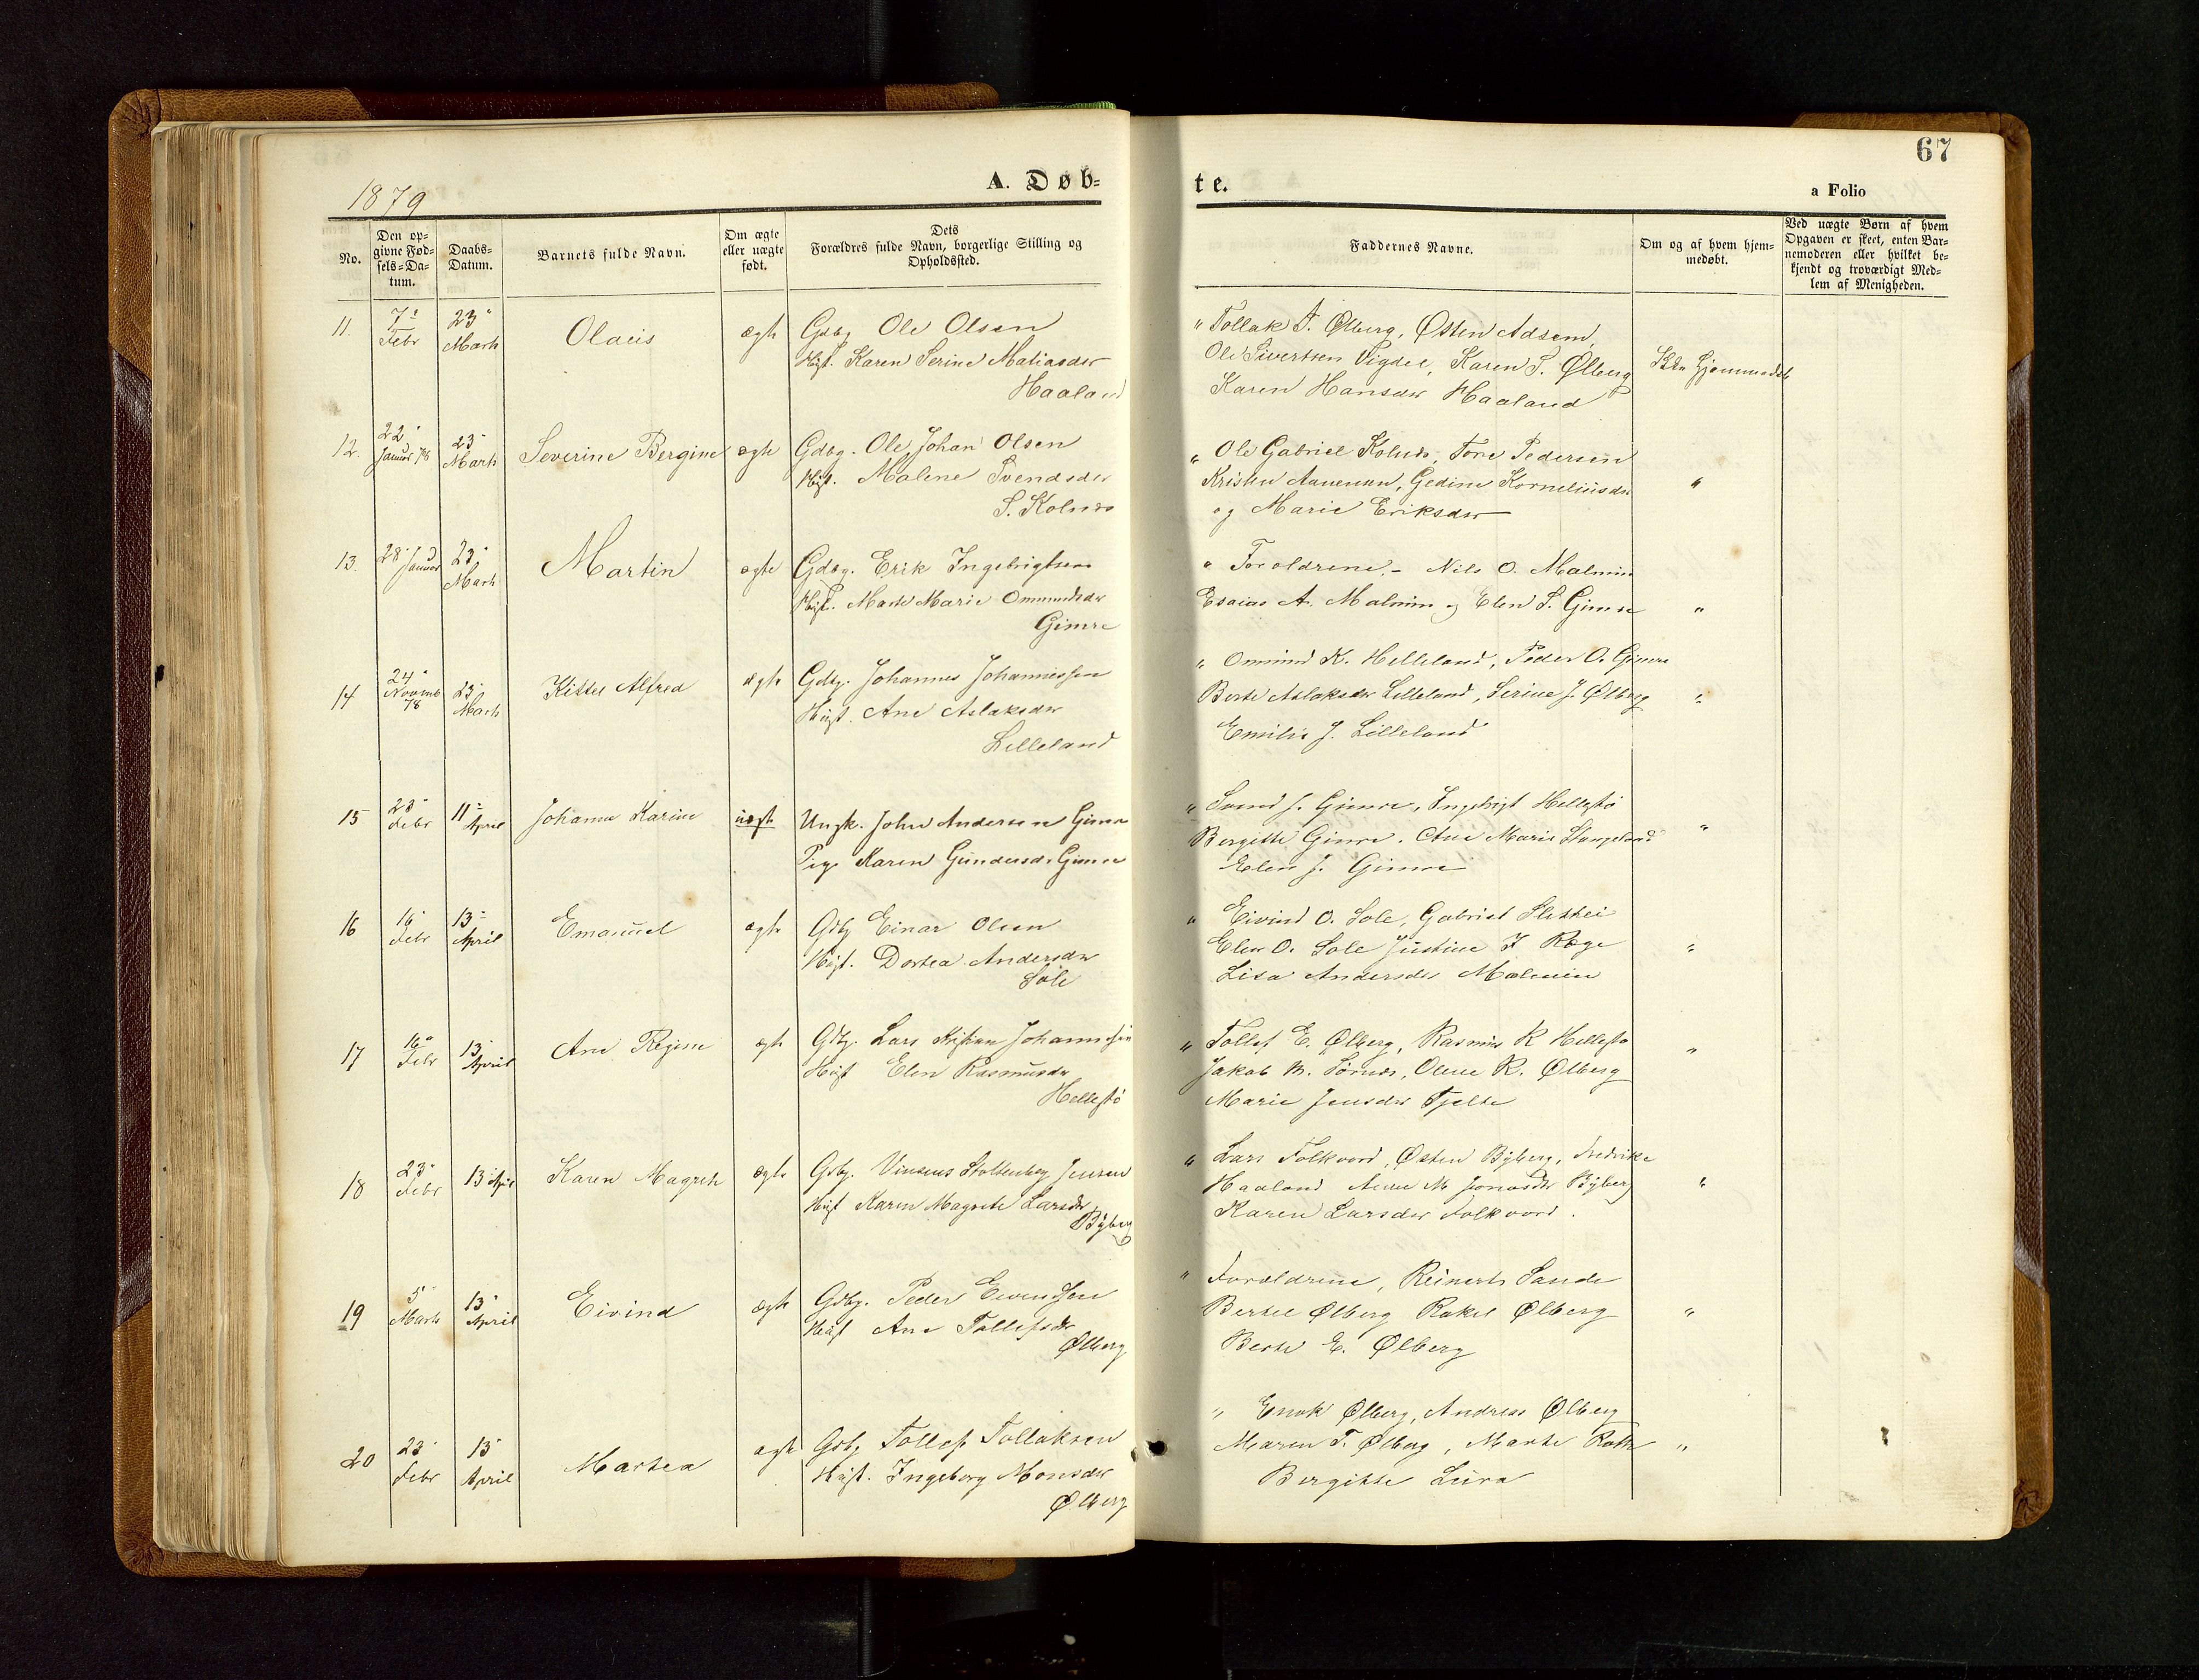 1879
A. Døb=
te.
67
a Folio
No.
Den op=
givne Fød=
sels=Da=
tum.
Daabs=
Datum.
Barnets fulde Navn.
Om ægte
eller uægte
født.
Dets
Forældres fulde Navn, borgerlige Stilling og
Opholdssted.
Faddernes Navne.
Om og af hvem hjem=
medøbt.
Ved uægte Børn af hvem
Opgaven er skeet, enten Bar=
nemoderen eller hvilket be=
kjendt og troværdigt Med=
lem af Menigheden.
11. 7de Febr 23 Marts Olaus ægte Gdbg Ole Olsen
Hst. Karen Serine Matiasdtr
Haaland
" Tollak T. Ølberg, Østen Adsem,
Ole Sivertsen Vigdel, Karen T. Ølberg
Karen Hansdtr Haaland
Ikke hjemmedøbt
12. 22 Januar 78 23 Marts Severine Bergine ægte Gdbg. Ole Johan Olsen
Hst. Malene Svendsdtr
S. Kolnes
" Ole Gabriel Kolnes, Tore Pedersen
Kristen Aanensen, Gedine Korneliusdtr
og Marie Eriksdtr
"
13. 28 Januar 23 Marts Martin ægte Gdbg. Erik Ingebrigtsen
Hst. Marte Marie Ommundsdtr
Gimre
" Foroldrene, - Nils O. Malmin
Esaias A. Malmin og Elen S. Gimre
"
14 24 Novemb 78 23 Marts Kittel Alfred ægte Gdbg. Johannes Johannessen
Hst. Ane Aslaksdtr
Lilleland
" Ommund K. Helleland, Peder O. Gimre
Berte Aslaksdtr Lilleland, Serine J. Ølberg
Emilie J. Lilleland
"
15 23 Febr 11 April Johanne Karine uægt Ungk. John Andersen Gimre
Pige Karen Gundersd. Gimre
" Svend J. Gimre, Ingebrigt Hellestø
Bergitte Gimre. Ane Marie Stangeland
Elen J. Gimre
"
16 16 Febr 13 April Emanuel ægte Gdbg Einar Olsen
Hst. Dortea Andersdtr
Sole
" Eivind O. Sole, Gabriel
Elen O. Sole Justine Ræge
Lisa Andersdtr Malmin
"
17 16 Febr 13 April Ane Regine ægte Gdbg. Lars Kristian Johannessen
Hst Elen Rasmusdtr
Hellestø
" Tollef E. Ølberg, Rasmus R Hellestø
Jakob M. Sørnes, Olene R. Ølberg
Marie Jensdtr Tjelte
"
18 23 Febr 13 April Karen Magrete ægte Gdbg. Vinsens Stoltenberg Jensen
Hst Karen Magrete Larsdtr
Byberg
" Lars Folkvord, Østen Byberg, Fredrikke
Haaland Anne M Jonasdtr Byberg
Karen Larsdtr Folkvord.
"
19 5 Marts 13 April Eivind ægte Gdbg. Peder Eivendsen
Hst Ane Tollefsdtr
Ølberg
" Forældrene, Reinert Sande
Bertel Ølberg Rakel Ølberg
Berte E. Ølberg
"
20 23 Febr 13 April Martea ægte Gdbg Tollef Tollaksen
Hst. Ingeborg Monsdtr
Ølberg
" Enok Ølberg, Andreas Ølberg
Maren T. Ølberg, Marte Rott
Bergitte Lura
"